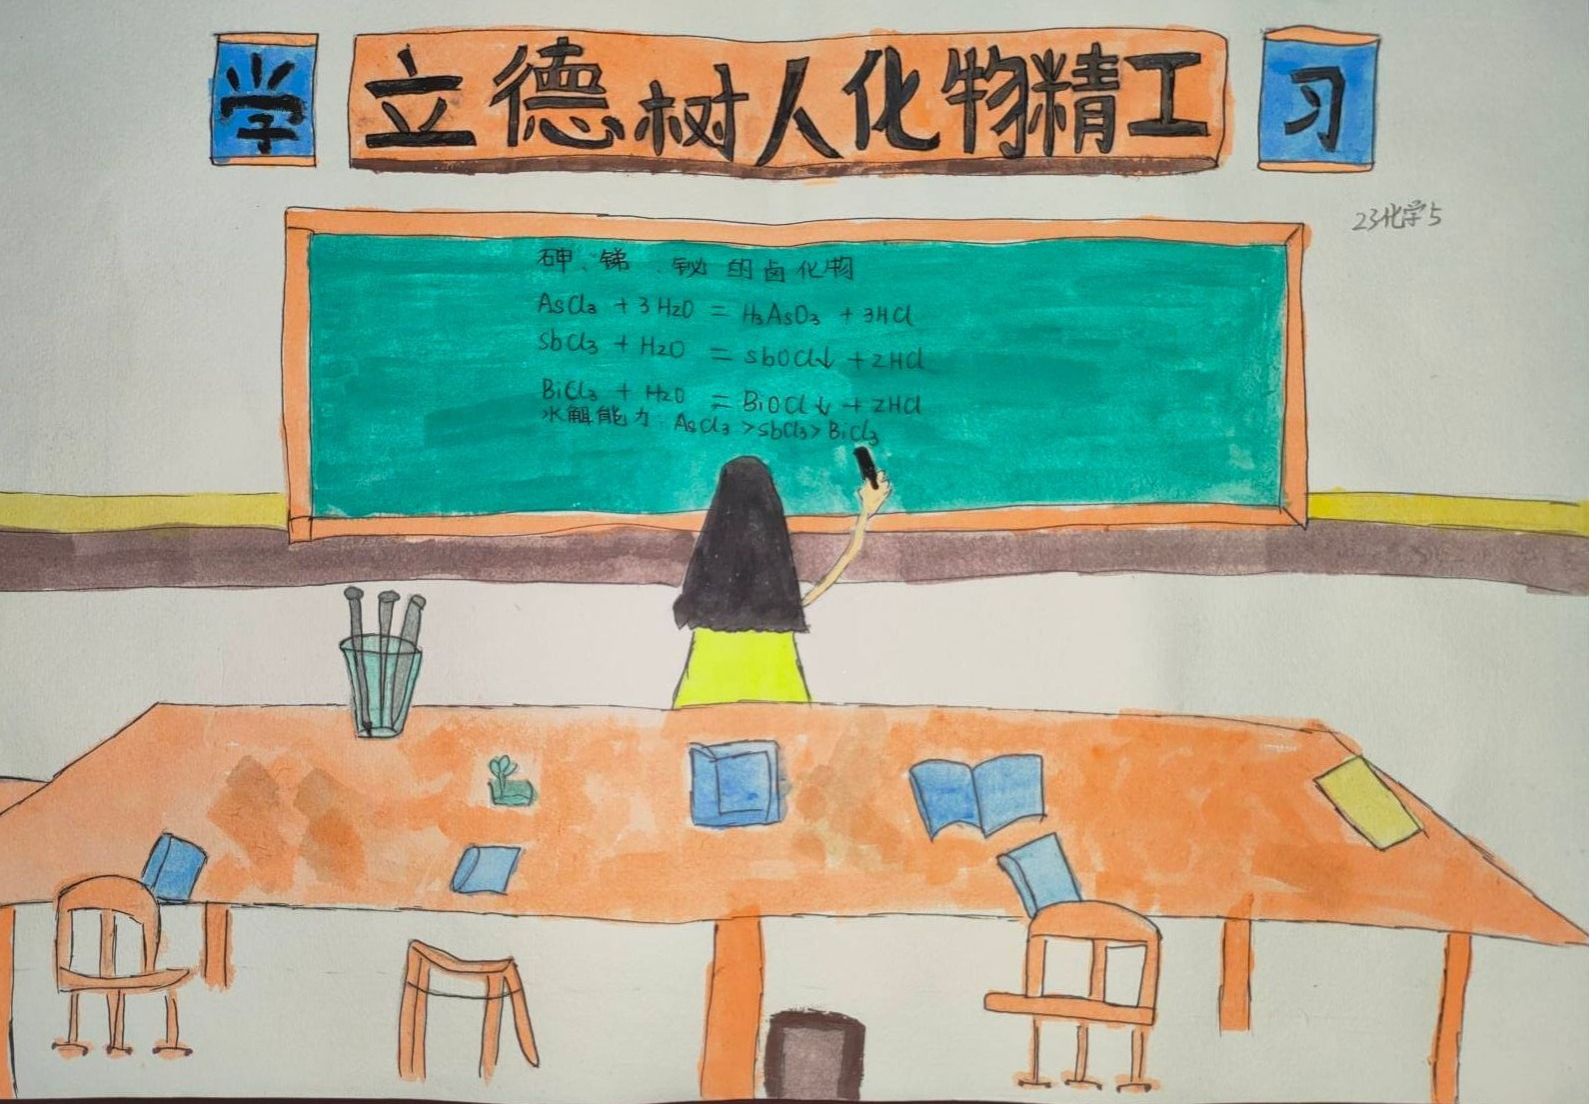 学 立德树人化物精工 习
23化学5
砷、锑、铋的卤化物
AsCl₃ + 3H₂O = H₃AsO₃ + 3HCl
SbCl₃ + H₂O = SbOCl↓ + 2HCl
BiCl₃ + H₂O = BiOCl↓ + 2HCl
水解能力 AsCl₃ > SbCl₃ > BiCl₃